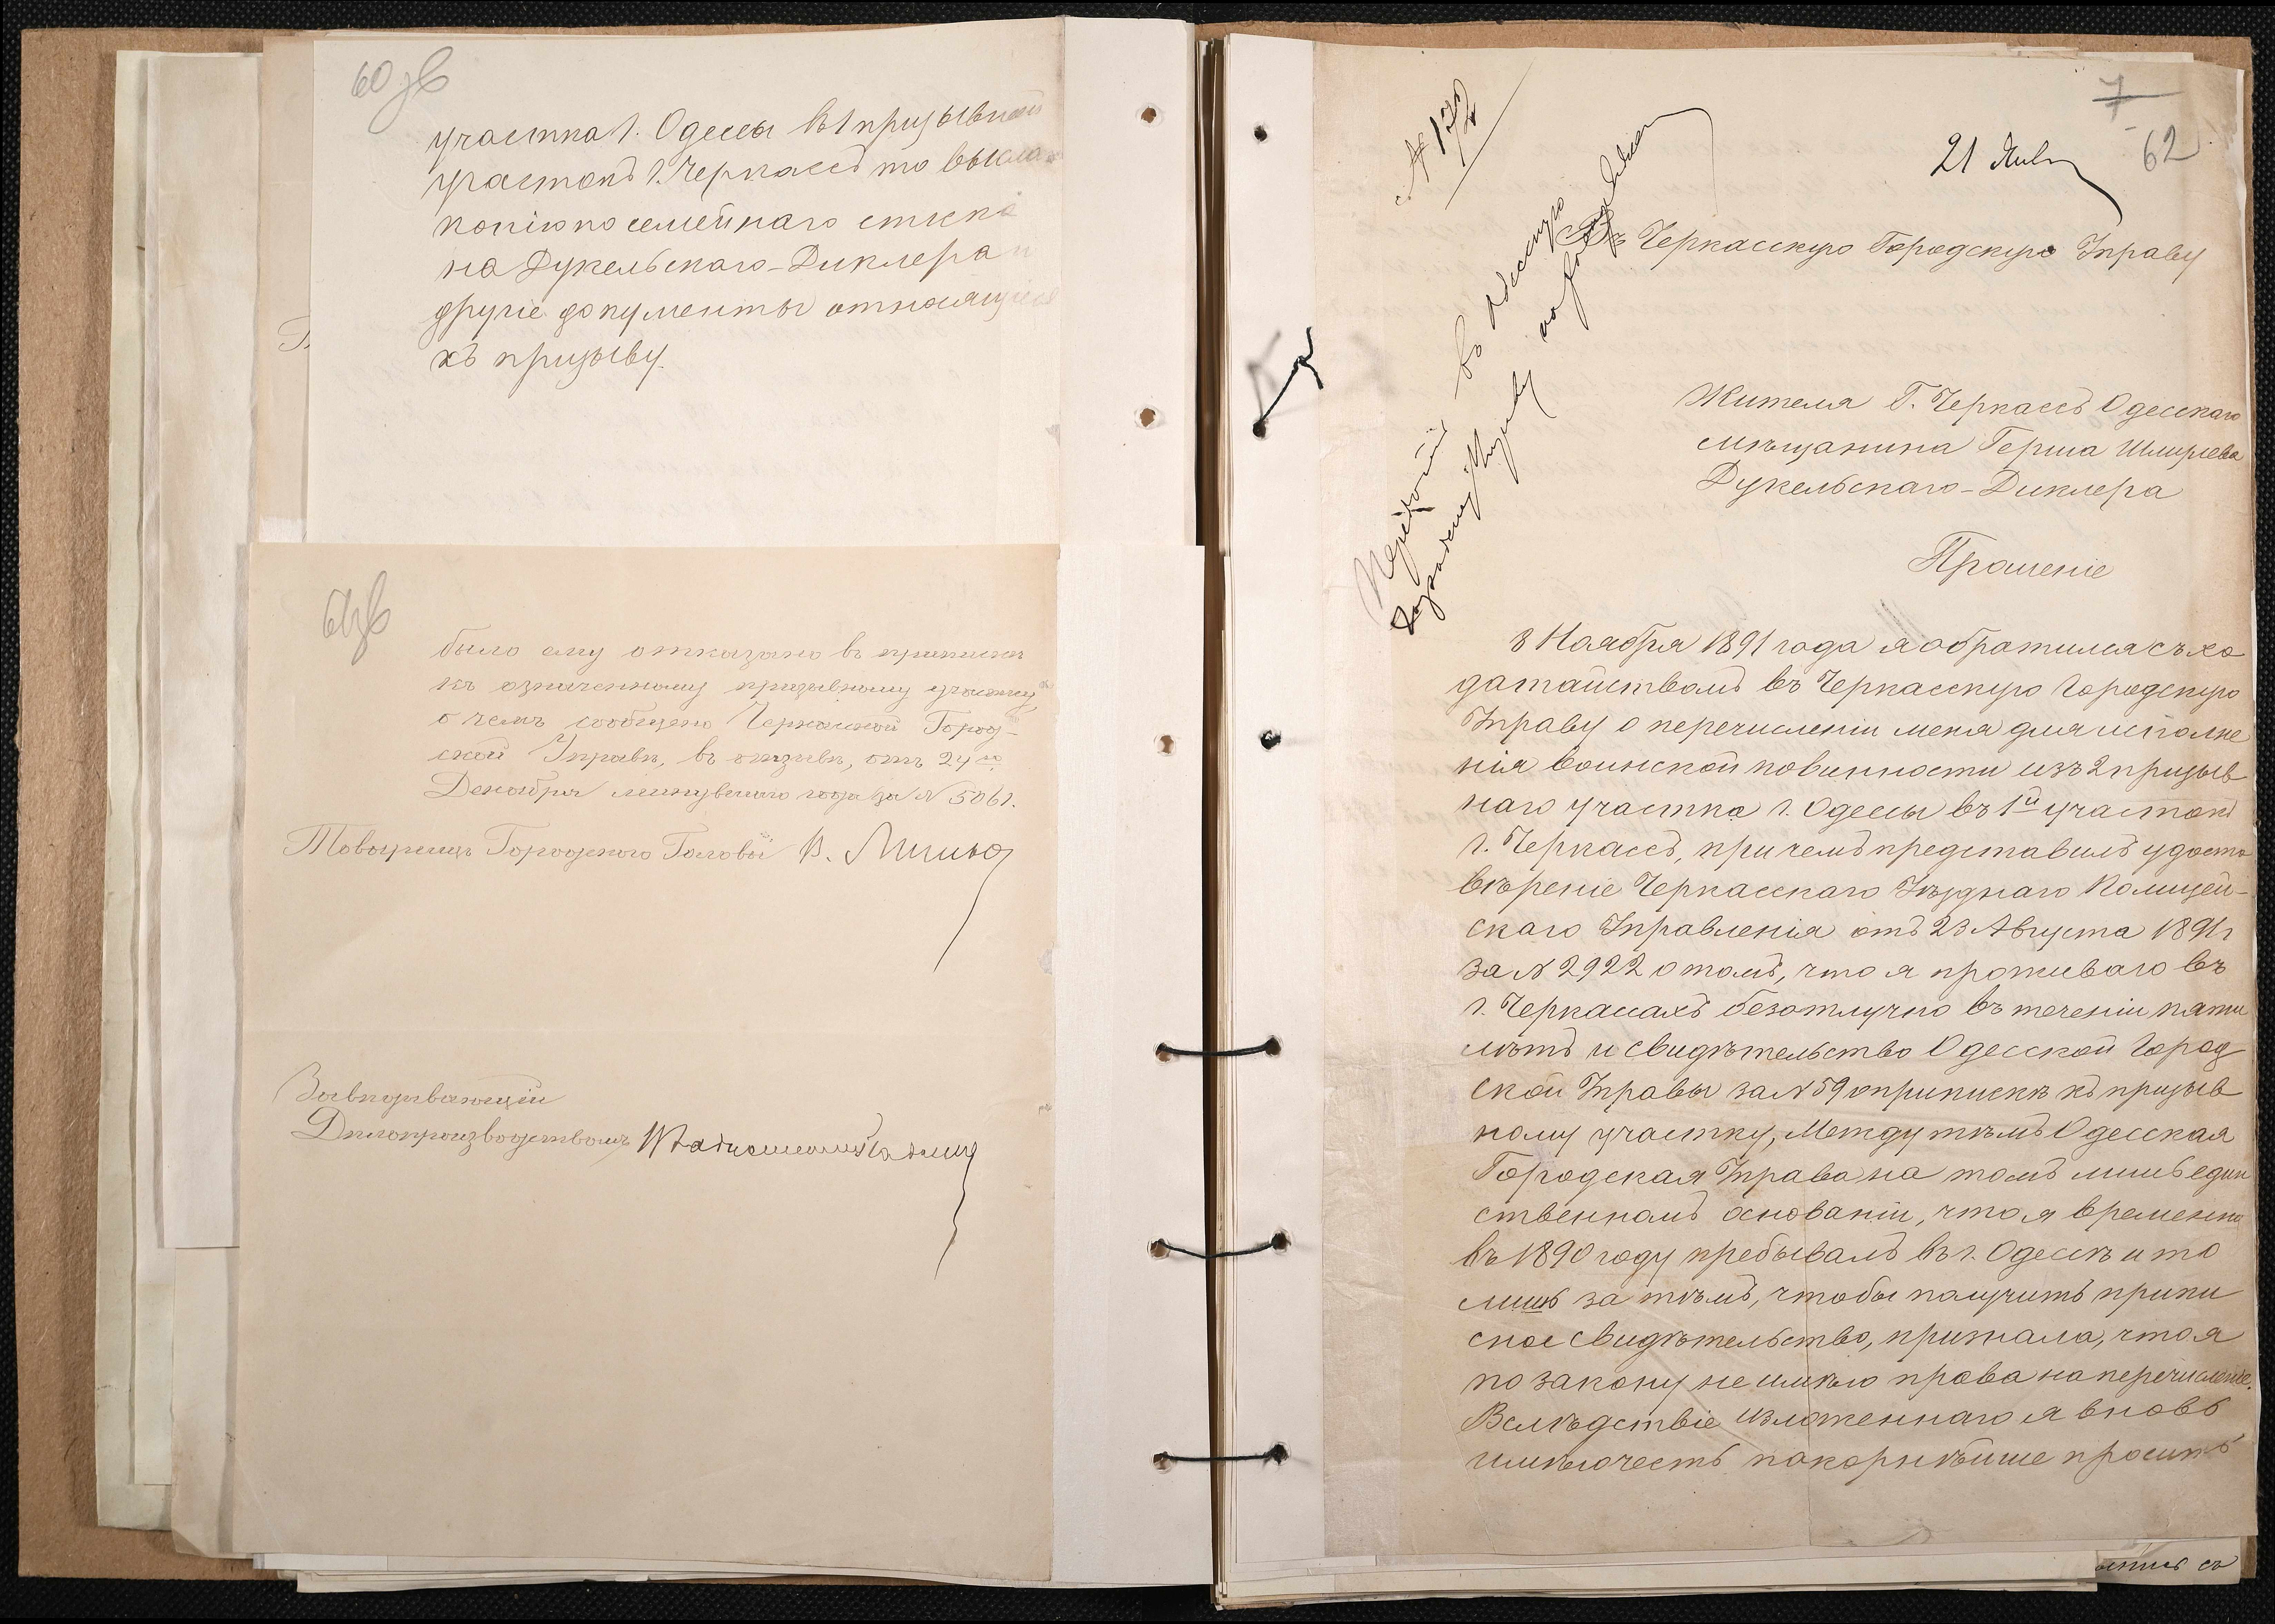 60 зв
участка г. Одессы въ 1 призывной
участокъ г. Черкассъ то выслать
копію посемейнаго списка
на Дукельскаго-Диклера и
другіе документы относящіеся
къ призыву.
61 зв
было ему отказано въ припискѣ
къ означенному призывному участку,
о чемъ сообщено Черкасской Город-
ской Управѣ, въ отзывѣ, отъ 24го
Декабря минувшаго года за № 5061.
Товарищъ Городского Головы В.
Завѣдывающій
Дѣлопроизводствомъ
7
62
21 Янв
№ 172
Въ Черкасскую Городскую Управу
въ Одесскую
Городскую Управу
Жителя Г. Черкассъ Одесскаго
мѣщанина Герша Шмулева
Дукельскаго-Диклера
Прошеніе
8 Ноября 1891 года я обратился съ хо
датайствомъ въ Черкасскую Городскую
Управу о перечисленіи меня для исполне
нія воинской повинности изъ 2 призыв
наго участка г. Одессы въ 1й участокъ
г. Черкассъ, при чемъ представилъ удосто
вѣреніе Черкасскаго Уѣзднаго Полицей-
скаго Управленія отъ 23 Августа 1891 г
за № 2922 о томъ, что я проживаю въ
г. Черкассахъ безотлучно въ теченіи пяти
лѣтъ и свидѣтельство Одесской Город
ской Управы за № 59 о припискѣ къ призыв
ному участку, Между тѣмъ Одесская
Городская Управа на томъ лишь един
ственномъ основаніи, что я временно
въ 1890 году пребывалъ въ г. Одессѣ и то
лишь за тѣмъ, чтобы получить припи
сное свидѣтельство, признала, что я
по закону не имѣю права на перечисленіе.
Вслѣдствіе изложеннаго я вновь
имѣю честь покорнѣйше просить